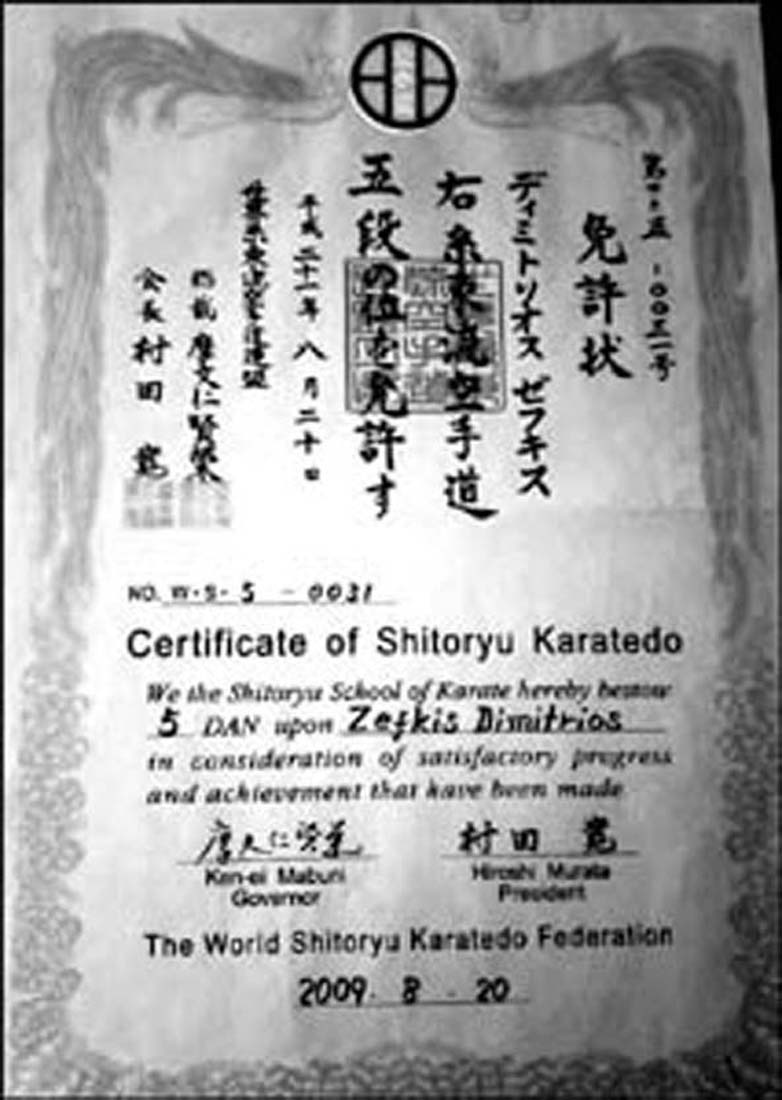 免許状
ディミトリオス ゼフキス
右 糸東流空手道
五段の位を免許す
平成二十一年八月二十日
摩文仁賢榮
会長 村田 寛
NO. W-S-5-0031
Certificate of Shitoryu Karatedo
We the Shitoryu School of Karate hereby bestow
5 DAN upon Zefkis Dimitrios
in consideration of satisfactory progress
and achievement that have been made
摩文仁賢榮 村田 寛
Ken-ei Mabuni Hiroshi Murata
Governor President
The World Shitoryu Karatedo Federation
2009. 8 - 20